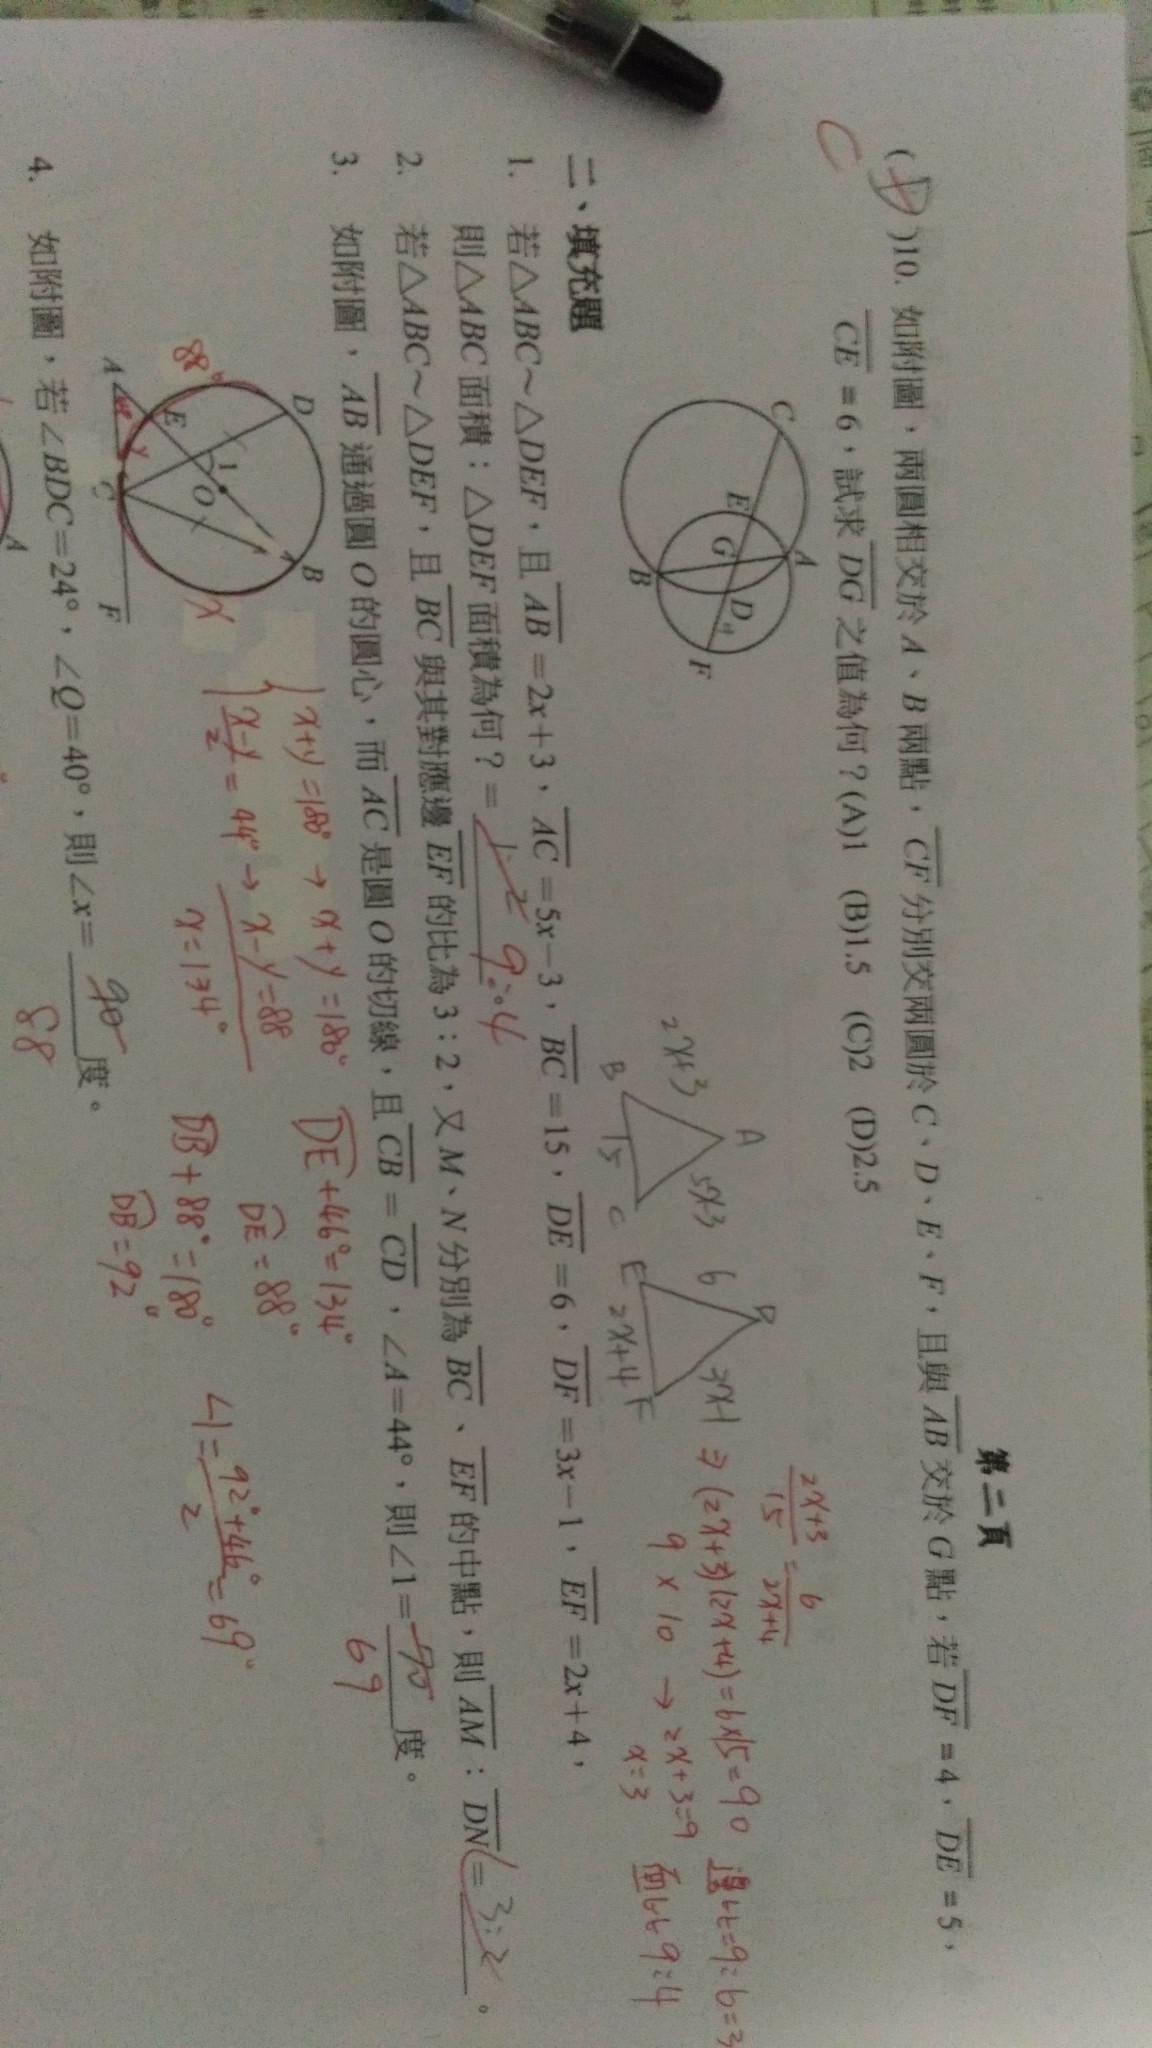 第二頁
(D)10. 如附圖，兩圓相交於 A、B 兩點，CF 分別交兩圓於 C、D、E、F，且與 AB 交於 G 點，若 DF =4，DE =5，
C
CE =6，試求 DG 之值為何？(A)1 (B)1.5 (C)2 (D)2.5
C
A
E
G
D
4
B
F
2x+3/15 = 6/2x+4
A
2x+3
5x-3
B
15
C
D
6
3x-1
E
2x+4
F
⇒ (2x+3)(2x+4)=6×15=90 邊比=9:6=3
9 × 10 → 2x+3=9 面比9:4
x=3
二、填充題
1. 若△ABC～△DEF，且 AB =2x+3、AC =5x－3，BC =15，DE =6，DF =3x－1，EF =2x+4，
則△ABC 面積：△DEF 面積為何？= 1:2 9:4
2. 若△ABC～△DEF，且 BC 與其對應邊 EF 的比為 3：2，又 M、N 分別為 BC、EF 的中點，則 AM：DN = 3:2 。
3. 如附圖，AB 通過圓 O 的圓心，而 AC 是圓 O 的切線，且 CB = CD，∠A=44°，則∠1= 度。
69
D
B
88°
1
O
E
A
y
C
F
x
x+y=180° → x+y=180°
x-y/2 = 44° → x-y=88
x=134°
DE+46°=134°
DE=88°
DB+88°=180°
DB=92°
∠1= 92°+46°/2 =69°
4. 如附圖，若∠BDC=24°，∠Q=40°，則∠x= 90 度。
88
A